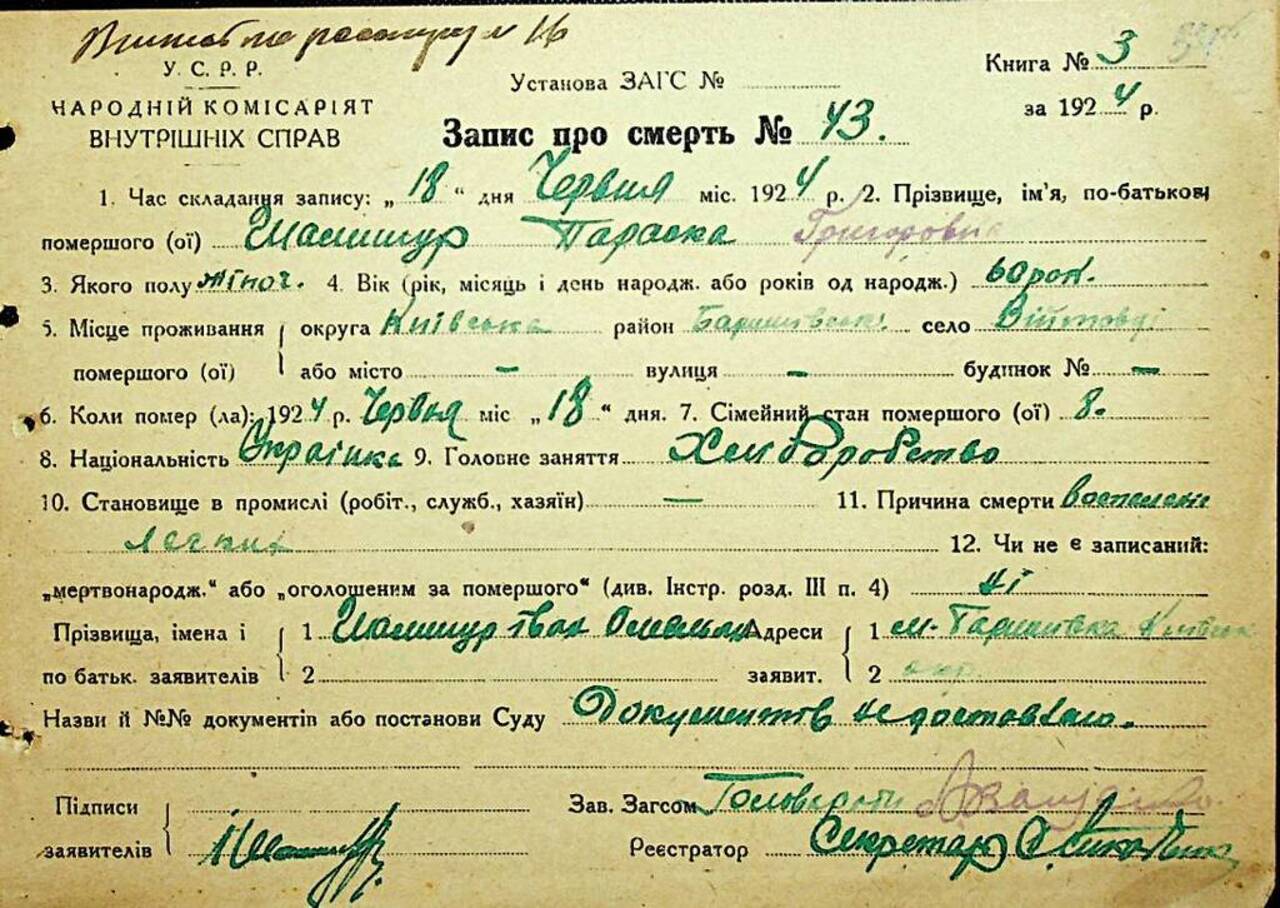 У. С. Р. Р.
НАРОДНІЙ КОМІСАРІЯТ
ВНУТРІШНІХ СПРАВ
Установа ЗАГС №
Книга № 3
за 1924 р.
Запис про смерть № 43.
1. Час складання запису: „18“ дня Червня міс. 1924 р. 2. Прізвище, ім'я, по-батькові
помершого (ої) Шалимур Параска Григоровна
3. Якого полу жіноч. 4. Вік (рік, місяць і день народж. або років од народж.) 60 рок.
5. Місце проживання округа Київська район Баришівськ. село Війтовці
помершого (ої) або місто — вулиця — будинок № —
6. Коли помер (ла): 1924 р. Червня міс „18“ дня. 7. Сімейний стан помершого (ої) в.
8. Національність Українка 9. Головне заняття Хліборобство
10. Становище в промислі (робіт., служб., хазяїн) — 11. Причина смерти воспелені
легких 12. Чи не є записаний:
„мертвонародж.“ або „оголошеним за помершого“ (див. Інстр. розд. III п. 4) ні
Прізвища, імена і 1 Шалимур Іван Адреси 1 м. Баришівка Київськ
по батьк. заявителів 2 заявит. 2 окр.
Назви й №№ документів або постанови Суду Документів не доставлено.
Підписи Зав. Загсом
заявителів Реєстратор Секретар